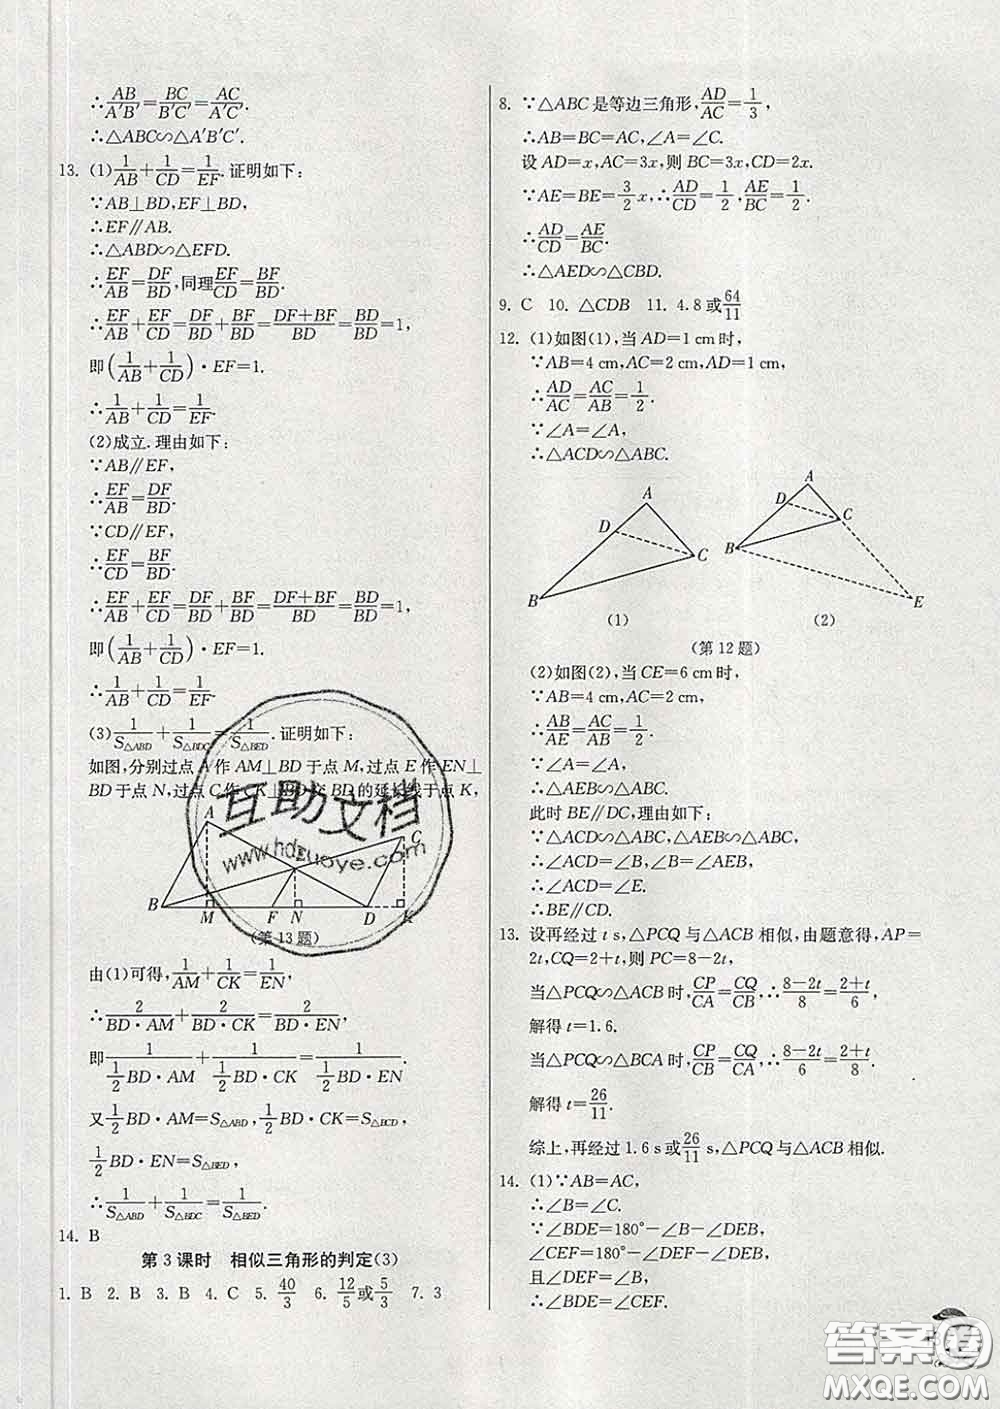 ∴AB/A′B′=BC/B′C′=AC/A′C′.
∴△ABC∽△A′B′C′.
13. (1)1/AB+1/CD=1/EF. 证明如下：
∵AB⊥BD,EF⊥BD,
∴EF∥AB.
∴△ABD∽△EFD.
∴EF/AB=DF/BD,同理EF/CD=BF/BD.
∴EF/AB+EF/CD=DF/BD+BF/BD=DF+BF/BD=BD/BD=1,
即(1/AB+1/CD)·EF=1.
∴1/AB+1/CD=1/EF.
(2)成立.理由如下：
∵AB∥EF,
∴EF/AB=DF/BD.
∵CD∥EF,
∴EF/CD=BF/BD.
∴EF/AB+EF/CD=DF/BD+BF/BD=DF+BF/BD=BD/BD=1,
即(1/AB+1/CD)·EF=1.
∴1/AB+1/CD=1/EF.
(3)1/S△ABD+1/S△BDC=1/S△BED.证明如下：
如图,分别过点A作AM⊥BD于点M,过点E作EN⊥
BD于点N,过点C作CK⊥BD交BD的延长线于点K,
互助文档
www.hdzuoye.com
A
E
C
B M F N D K
(第13题)
由(1)可得,1/AM+1/CK=1/EN,
∴2/BD·AM+2/BD·CK=2/BD·EN,
即1/(1/2 BD·AM)+1/(1/2 BD·CK)=1/(1/2 BD·EN).
又1/2 BD·AM=S△ABD,1/2 BD·CK=S△BCD,
1/2 BD·EN=S△BED,
∴1/S△ABD+1/S△BDC=1/S△BED.
14. B
第3课时 相似三角形的判定(3)
1. B 2. B 3. B 4. C 5. 40/3 6. 12/5或5/3 7. 3
8. ∵△ABC是等边三角形,AD/AC=1/3,
∴AB=BC=AC,∠A=∠C.
设AD=x,AC=3x,则BC=3x,CD=2x.
∵AE=BE=3/2 x,∴AD/CD=1/2,AE/BC=1/2.
∴AD/CD=AE/BC.
∴△AED∽△CBD.
9. C 10. △CDB 11. 4.8或64/11
12. (1)如图(1),当AD=1 cm时,
∵AB=4 cm,AC=2 cm,AD=1 cm,
∴AD/AC=AC/AB=1/2.
∵∠A=∠A,
∴△ACD∽△ABC.
A
D
C
B
(1)
A
D
C
B
E
(2)
(第12题)
(2)如图(2),当CE=6 cm时,
∵AB=4 cm,AC=2 cm,
∴AB/AE=AC/AB=1/2.
∵∠A=∠A,
∴△AEB∽△ABC.
此时BE∥DC,理由如下：
∵△ACD∽△ABC,△AEB∽△ABC,
∴∠ACD=∠B,∠ABC=∠AEB,
∴∠ACD=∠E.
∴BE∥CD.
13. 设再经过t s,△PCQ与△ACB相似,由题意得,AP=
2t,CQ=2+t,则PC=8-2t,
当△PCQ∽△ACB时,CP/CA=CQ/CB,∴8-2t/8=2+t/6,
解得t=1.6.
当△PCQ∽△BCA时,CP/CB=CQ/CA,∴8-2t/6=2+t/8.
解得t=26/11.
综上,再经过1.6 s或26/11 s,△PCQ与△ACB相似.
14. (1)∵AB=AC,
∴∠B=∠C.
∵∠BDE=180°-∠B-∠DEB,
∠CEF=180°-∠DEF-∠DEB,
且∠DEF=∠B,
∴∠BDE=∠CEF.
答案圈
MXQE.COM